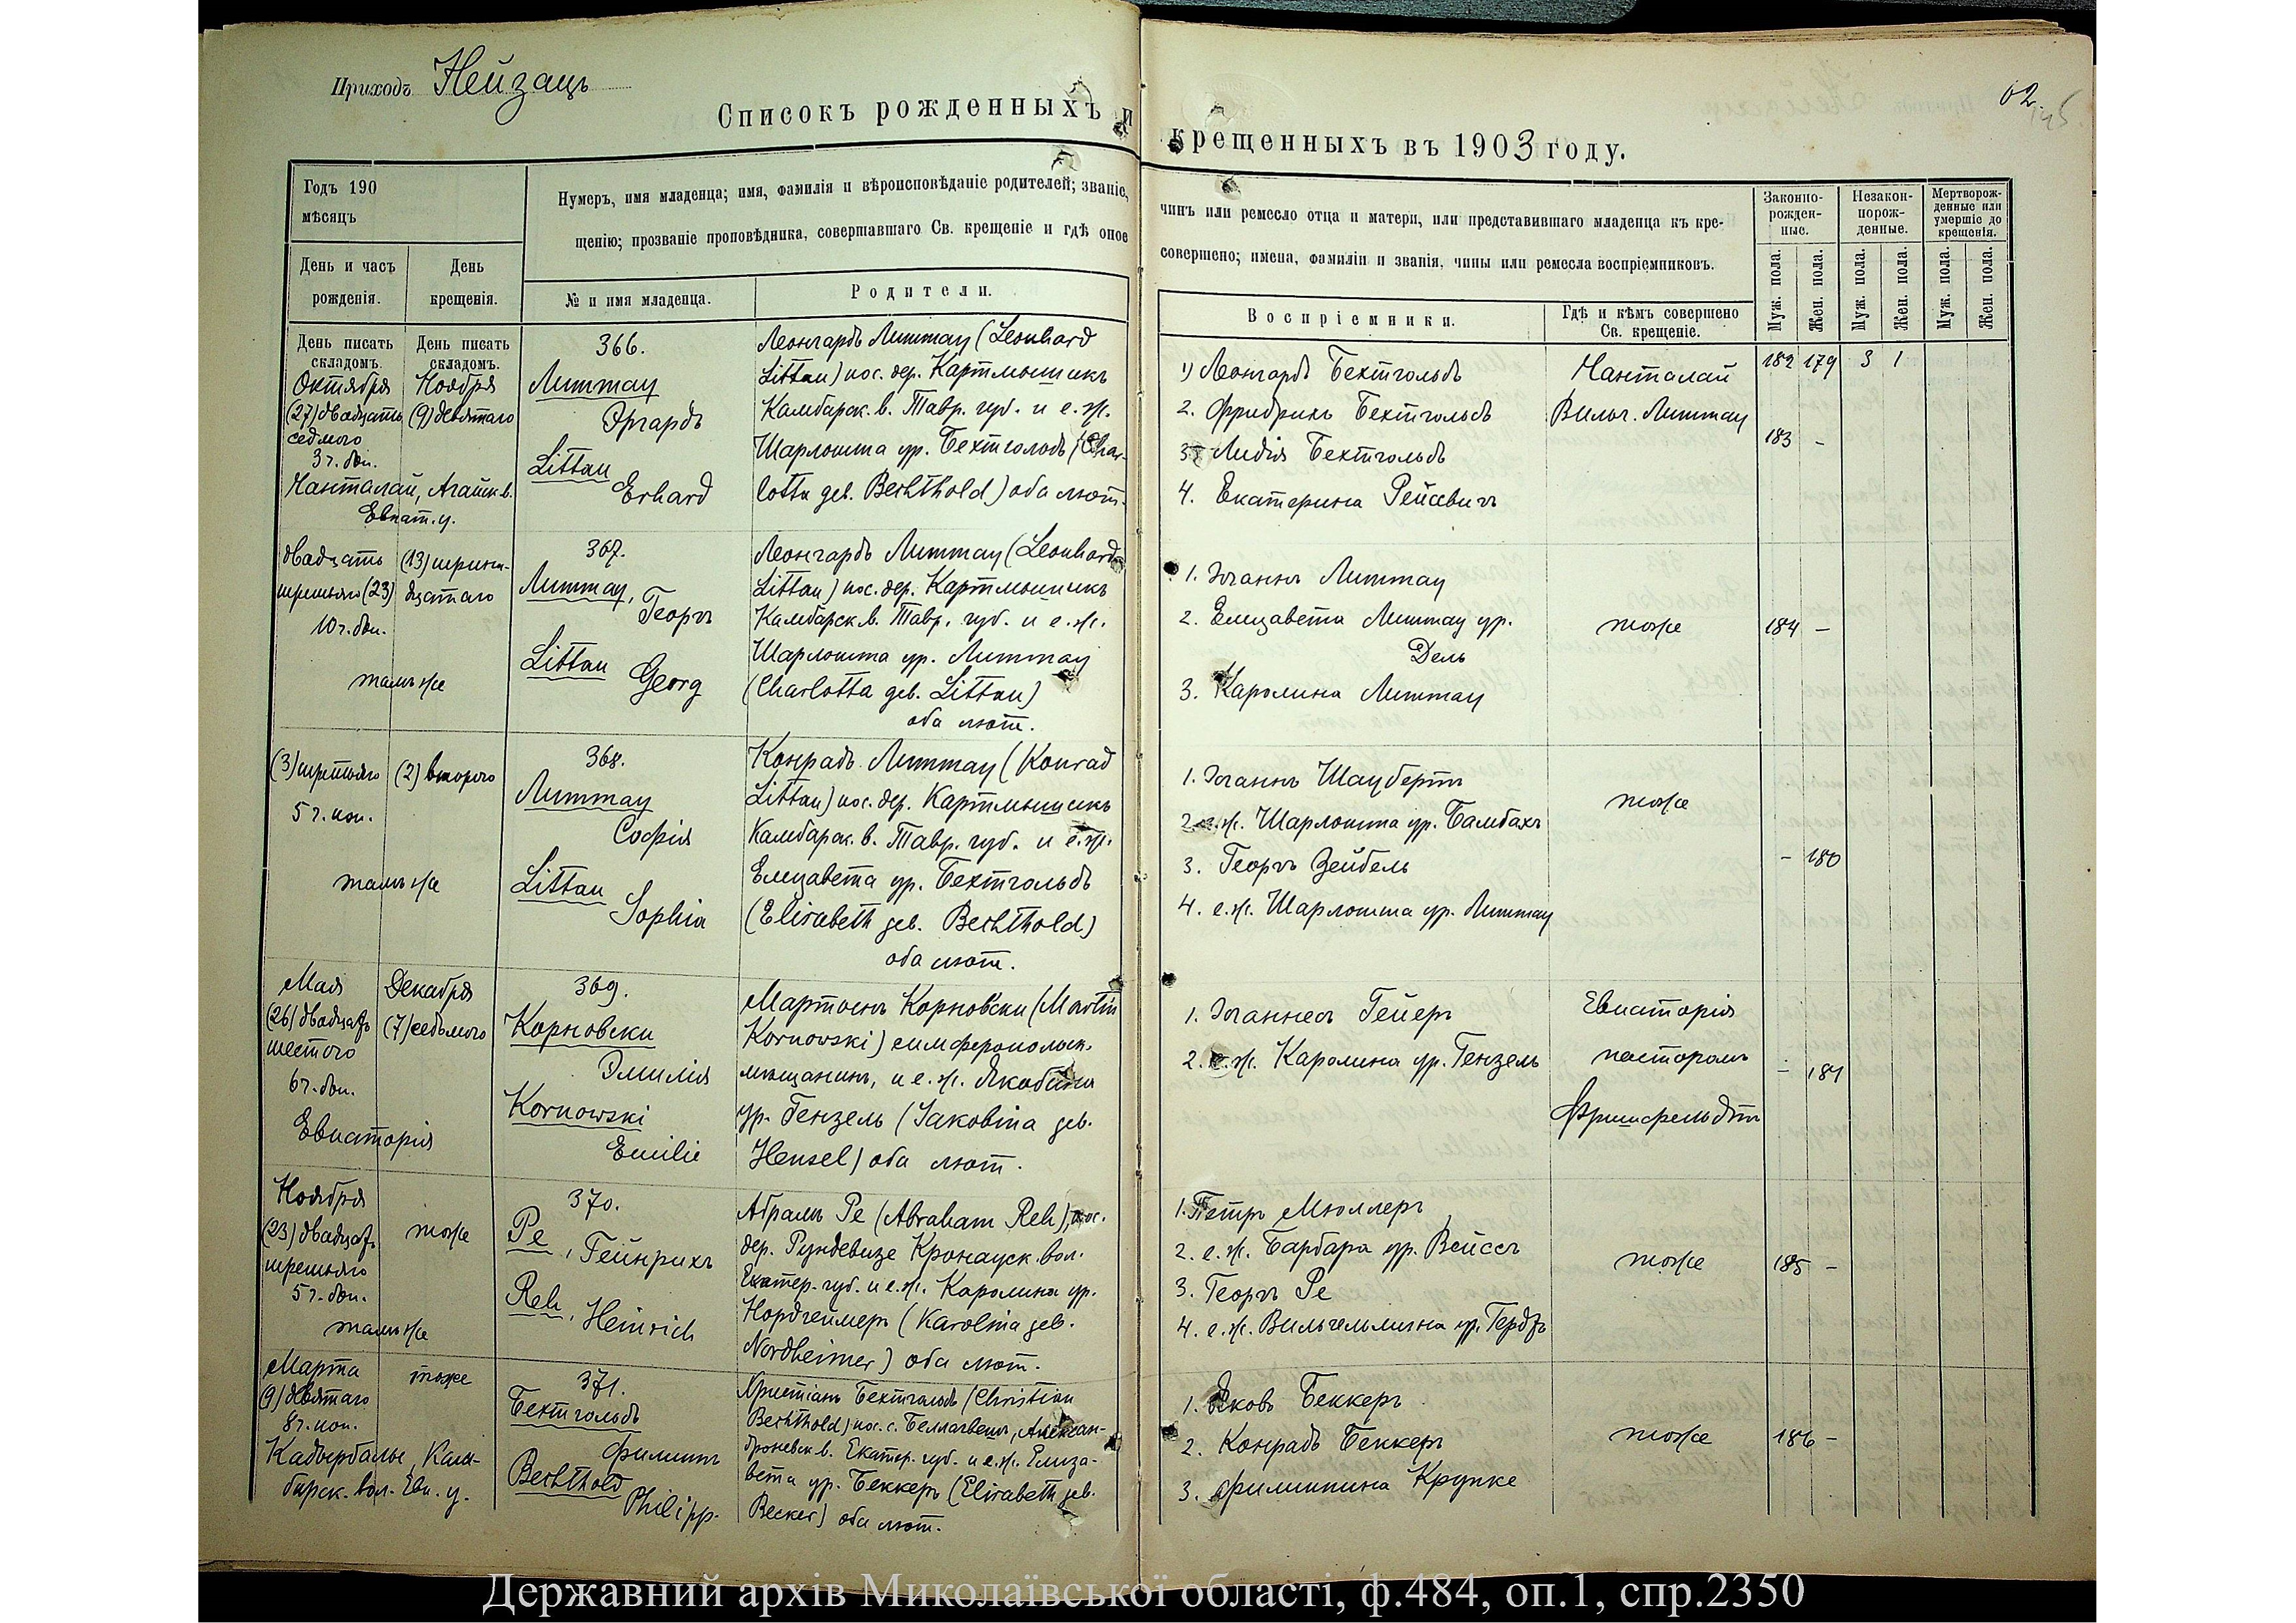 Приходъ Нейзацъ
62.
Списокъ рожденныхъ и крещенныхъ въ 1903 году.
Годъ 190
мѣсяцъ
День и часъ
рожденія.
День
крещенія.
Нумеръ, имя младенца; имя, фамилія и вѣроисповѣданіе родителей; званіе,
щенію; прозваніе проповѣдника, совершавшаго Св. крещеніе и гдѣ оное
№ и имя младенца.
Родители.
чинъ или ремесло отца и матери, или представившаго младенца къ кре-
совершено; имена, фамиліи и званія, чины или ремесла воспріемниковъ.
Воспріемники.
Гдѣ и кѣмъ совершено
Св. крещеніе.
Законно-
рожден-
ные.
Незакон-
норож-
денные.
Мертворож-
денные или
умершіе до
крещенія.
Муж. пола.
Жен. пола.
Муж. пола.
Жен. пола.
Муж. пола.
Жен. пола.
День писать
складомъ.
День писать
складомъ.
Октября
(27) двадцать
седмого
3 ч. дн.
Чанталай, Агайск. в.
Евпат. у.
Ноября
(9) девятаго
366.
Литтау
Эргардъ
Littau
Erhard
Леонгардъ Литтау (Leonhard
Littau) пос. дер. Картмышикъ
Камбарск. в. Тавр. губ. и е. ж.
Шарлотта ур. Бехтгольдъ (Char-
lotta geb. Bechthold) оба лют.
1) Леонгардъ Бехтгольдъ
2. Фридрихъ Бехтгольдъ
3. Лидія Бехтгольдъ
4. Екатерина Рейсвихъ
Чанталай
Вильг. Литтау
182 179 3 1
183 -
двадцать
третьяго (23)
10 ч. дн.
тамъ же
(13) трина-
дцатаго
367.
Литтау,
Георгъ
Littau
Georg
Леонгардъ Литтау (Leonhard
Littau) пос. дер. Картмышикъ
Камбарск. в. Тавр. губ. и е. ж.
Шарлотта ур. Литтау
(Charlotta geb. Littau)
оба лют.
1. Іоганнъ Литтау
2. Елизавета Литтау ур.
Дель
3. Каролина Литтау
тоже
184 -
(3) третьяго
5 ч. поп.
тамъ же
(2) второго
368.
Литтау
Софія
Littau
Sophia
Конрадъ Литтау (Konrad
Littau) пос. дер. Картмышикъ
Камбарск. в. Тавр. губ. и е. ж.
Елизавета ур. Бехтгольдъ
(Elisabeth geb. Bechthold)
оба лют.
1. Іоганнъ Шаубертъ
2. е. ж. Шарлотта ур. Бамбахъ
3. Георгъ Зейбель
4. е. ж. Шарлотта ур. Литтау
тоже
- 180
Мая
(26) двадцать
шестого
6 ч. дн.
Евпаторія
Декабря
(7) седьмого
369.
Корновски
Эмилія
Kornowski
Emilie
Мартинъ Корновски (Martin
Kornowski) симферопольск.
мѣщанинъ, и е. ж. Якобина
ур. Гензель (Jakobina geb.
Hensel) оба лют.
1. Іоганнесъ Гейеръ
2. е. ж. Каролина ур. Гензель
Евпаторія
пасторомъ
Фришфельдтъ
- 181
Ноября
(23) двадцать
третьяго
5 ч. дн.
тамъ же
тоже
370.
Ре, Гейнрихъ
Reh, Heinrich
Абрамъ Ре (Abraham Reh), пос.
дер. Рундевизе Кронауск. вол.
Екатер. губ. и е. ж. Каролина ур.
Нордгеймеръ (Karolina geb.
Nordheimer) оба лют.
1. Петръ Мюллеръ
2. е. ж. Барбара ур. Вейссъ
3. Георгъ Ре
4. е. ж. Вильгельмина ур. Гердтъ
тоже
185 -
Марта
(9) девятаго
8 ч. поп.
Кадырбалы, Кам-
барск. вол. Евп. у.
тоже
371.
Бехтгольдъ
Филиппъ
Bechthold
Philipp.
Христіанъ Бехтгольдъ (Christian
Bechthold) пос. с. Белагвешъ, Алексан-
дроневск. в. Екатер. губ. и е. ж. Елиза-
вета ур. Беккеръ (Elisabeth geb.
Becker) оба лют.
1. Яковъ Беккеръ
2. Конрадъ Беккеръ
3. Филиппина Крупке
тоже
186 -
Державний архів Миколаївської області, ф.484, оп.1, спр.2350